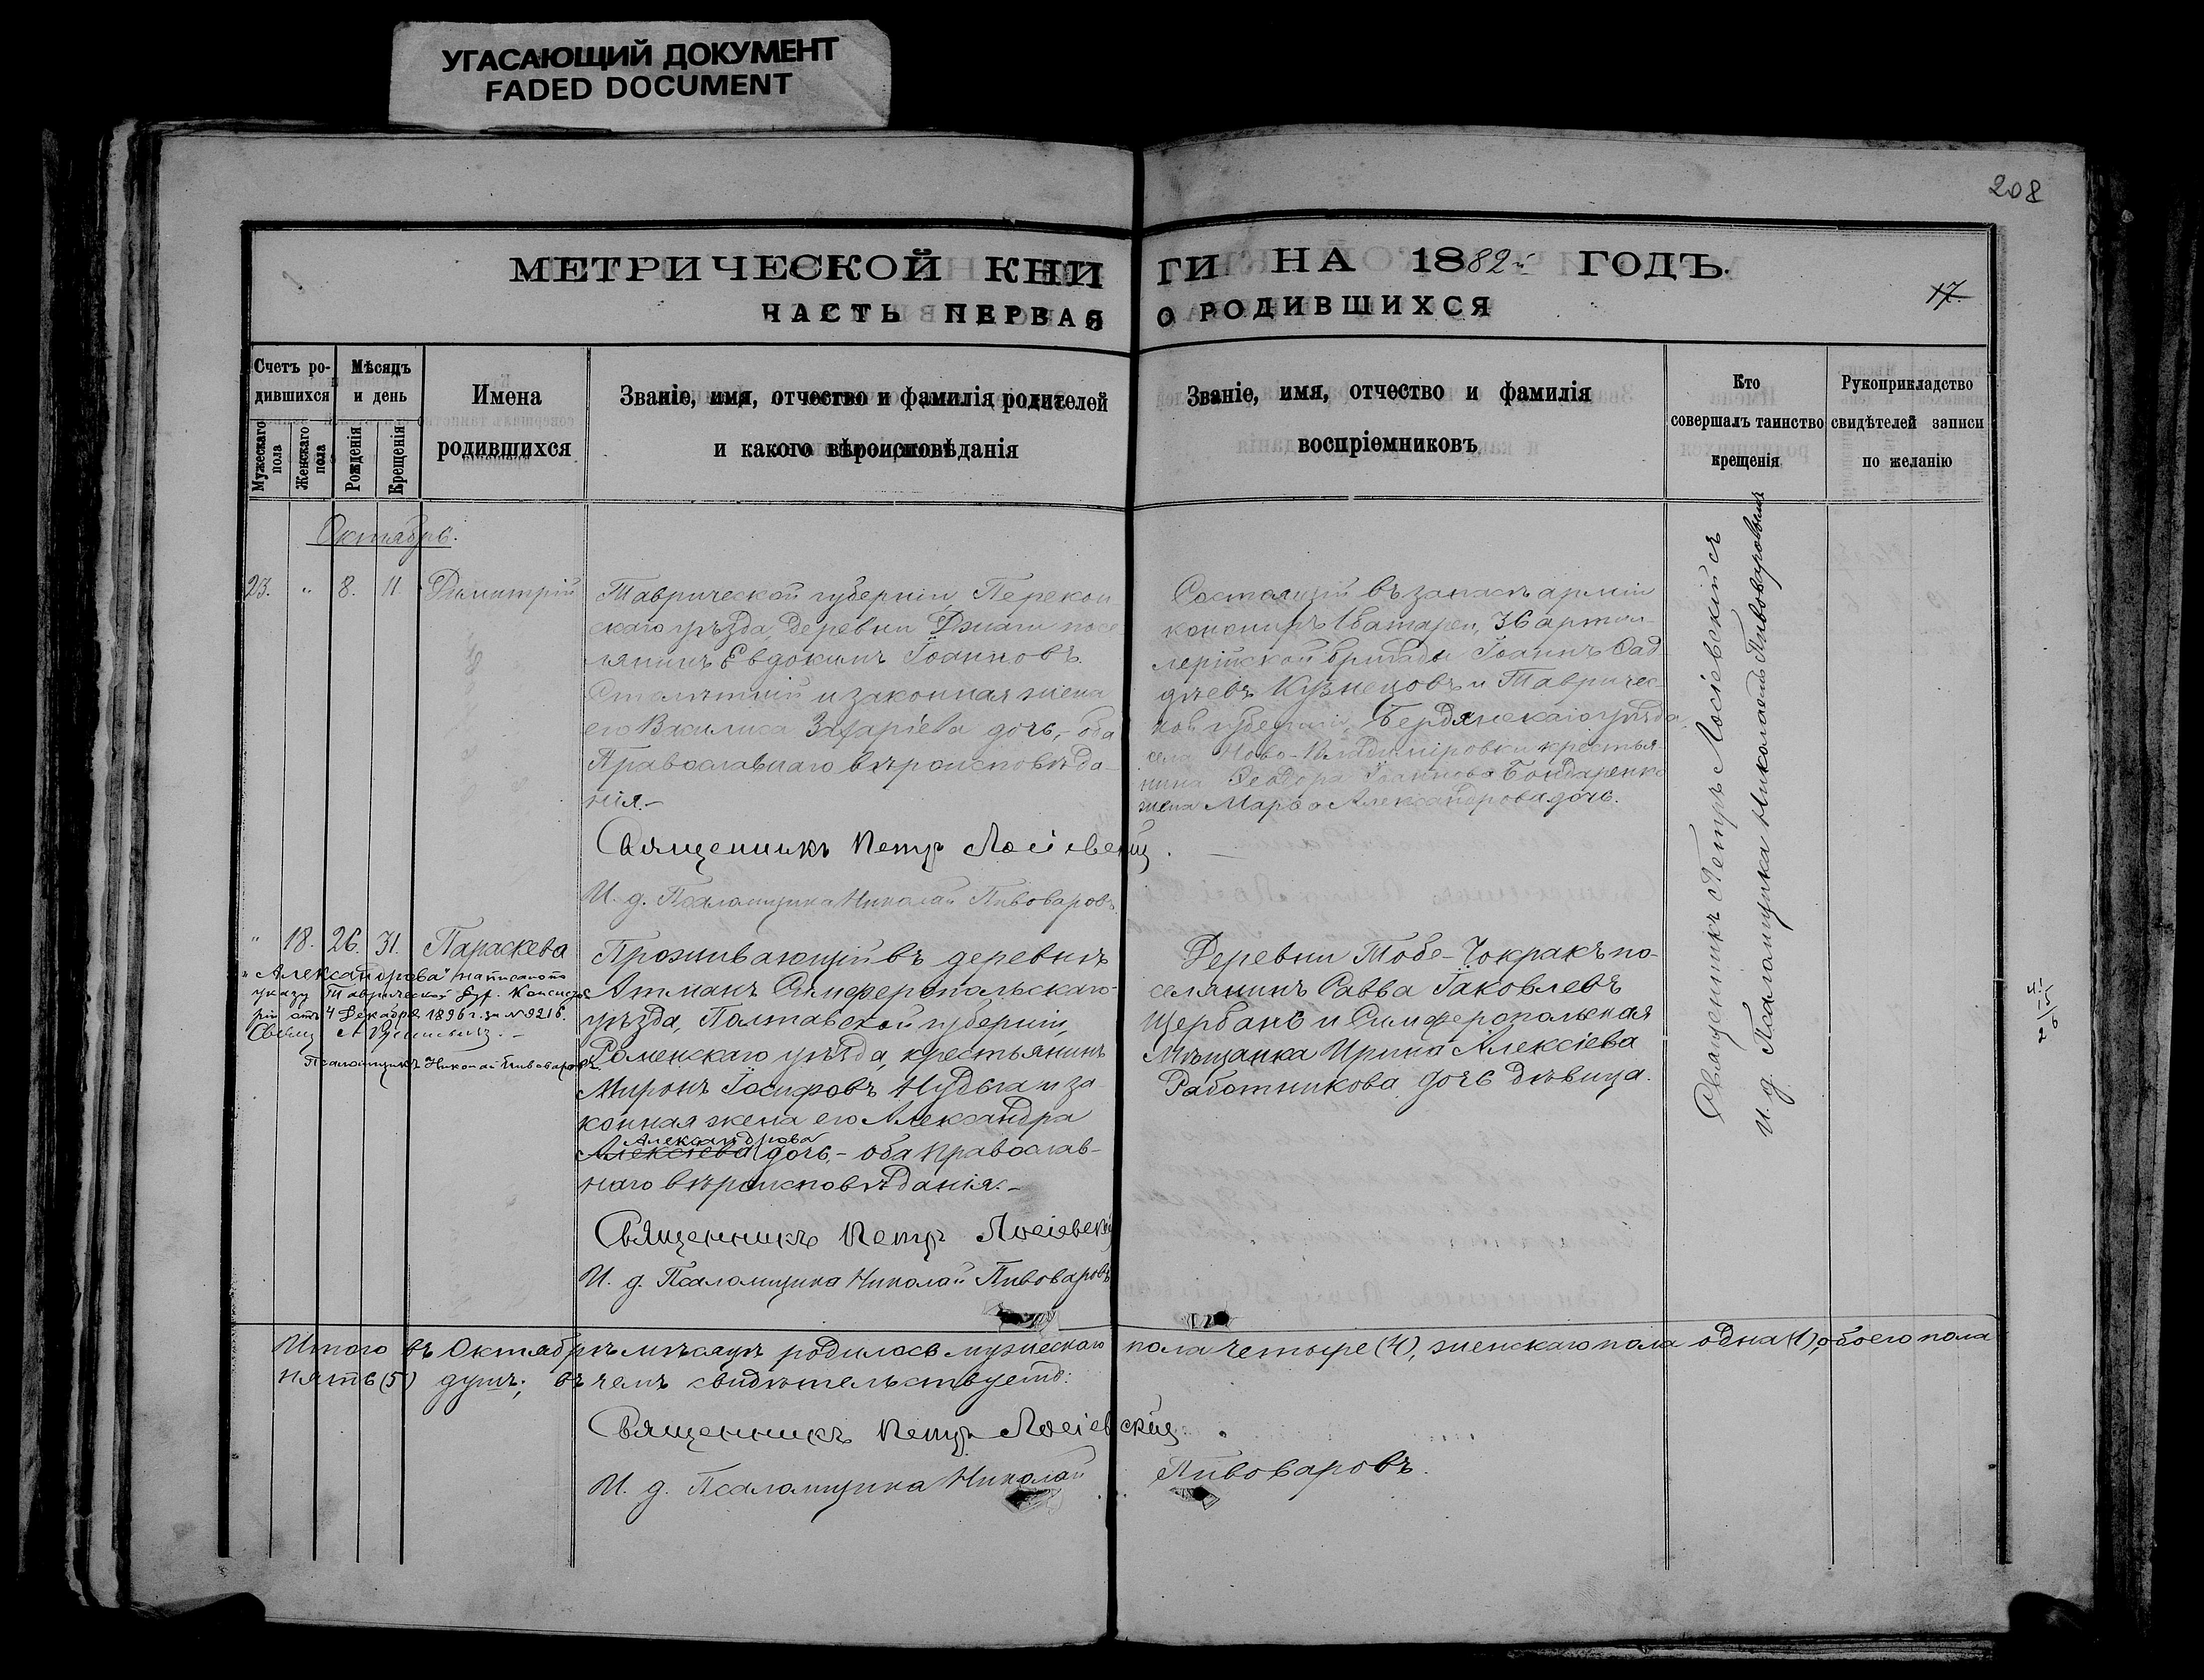 УГАСАЮЩИЙ ДОКУМЕНТ
FADED DOCUMENT
208
МЕТРИЧЕСКОЙ КНИГИ НА 1882й ГОДЪ.
ЧАСТЬ ПЕРВАЯ О РОДИВШИХСЯ
17
Счетъ ро-
дившихся
Мужескаго пола
Женскаго пола
Мѣсяцъ
и день
Рожденія
Крещенія
Имена
родившихся
Званіе, имя, отчество и фамилія родителей
и какого вѣроисповѣданія
Званіе, имя, отчество и фамилія
воспріемниковъ
Кто
совершалъ таинство
крещенія
Рукоприкладство
свидѣтелей записи
по желанію
Октябрь.
23. " 8. 11 Димитрій
Таврической губерніи, Перекоп
скаго уѣзда, деревни Джаги посе
лянинъ Евдокимъ Іоанновъ
Столѣтній и законная жена
его Василиса Захаріева дочь,- оба
Православнаго вѣроисповѣда-
нія.-
Священникъ Петр Лосіевскій.
И. д. Псаломщика Николай Пивоваровъ.
Состоящій въ запасѣ арміи
канониръ 1 батареи, 36 артил-
лерійской бригады Іоаннъ Фад
дѣевъ Кузнецовъ и Тавричес-
кой губерніи, Бердянскаго уѣзда,
села Ново-Владиміровки крестья-
нина Ѳеодора Іоаннова Бондаренко
жена Марѳа Александрова дочь.
" 18. 26. 31. Параскева
"Александрова" написано по
указу Таврической Дух. Консисто
ріи отъ 4 Декабря 1896 г. за №9216.
Псаломщикъ Николай Пивоваровъ.
Проживающій въ деревнѣ
Атманъ Симферопольскаго
уѣзда, Полтавской губерніи,
Роменскаго уѣзда, крестьянинъ
Миронъ Іосифовъ Нудьга и за
конная жена его Александра
Александрова
Алексіева дочь,- оба Православ-
наго вѣроисповѣданія.-
Священникъ Петр Лосіевскій
И. д. Псаломщика Николай Пивоваровъ
Деревни Тобе-Чокракъ по-
селянинъ Савва Іаковлевъ
Щербань и Симферопольская
Мѣщанка Ирина Алексіева
Работникова дочь дѣвица.
Священникъ Петръ Лосіевскій съ
И. д. Псаломщика Николаемъ Пивоваровымъ
Итого въ Октябрѣ мѣсяцѣ родилось мужескаго пола четыре (4), женскаго пола одна (1), обоего пола
пять (5) душъ; въ чемъ свидѣтельствуетъ:
Священникъ Петр Лосіевскій
И. д. Псаломщика Николай Пивоваровъ.